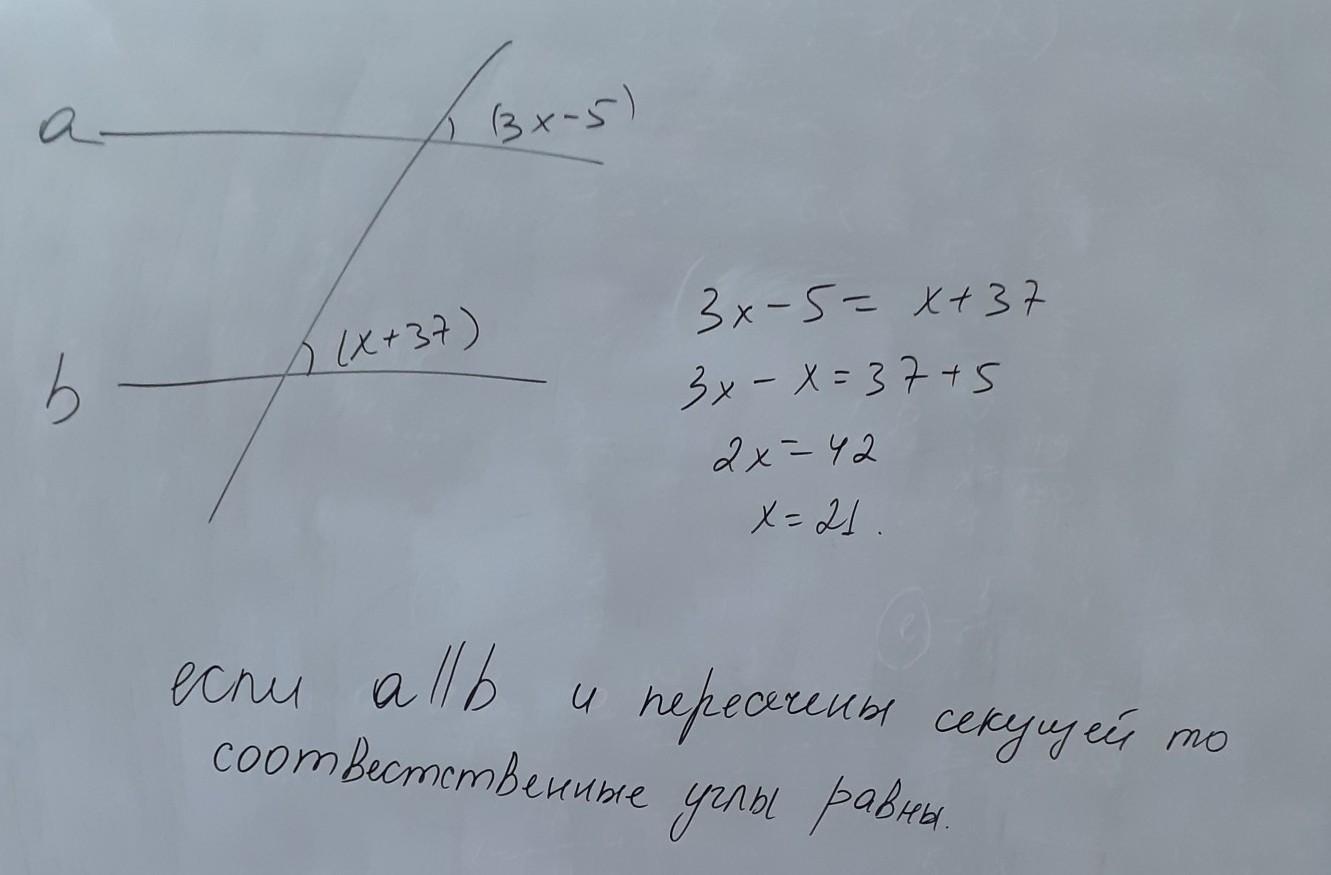 a
(3x-5)
b
(x+37)
3x-5= x+37
3x-x=37+5
2x=42
x=21.
если a||b и пересечены секущей то
соотвестственные углы равны.